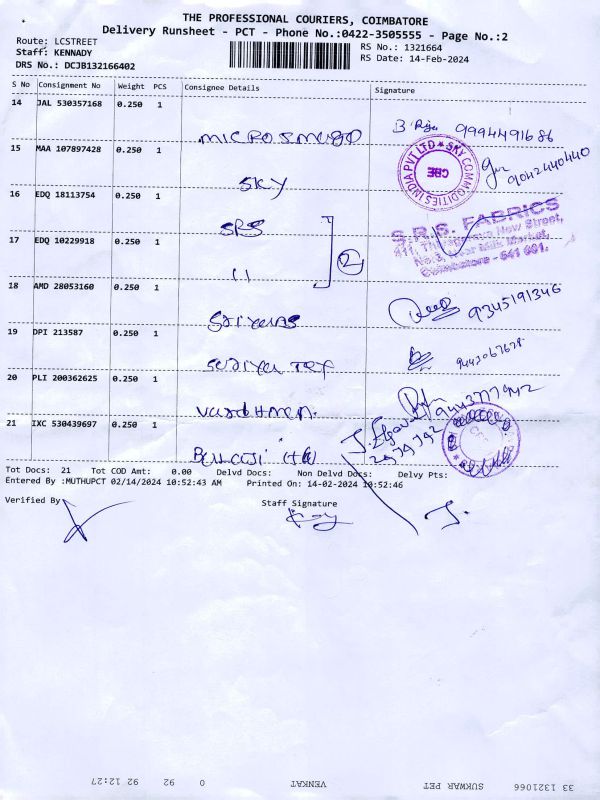 THE PROFESSIONAL COURIERS, COIMBATORE
Delivery Runsheet - PCT - Phone No.:0422-3505555 - Page No.:2
Route: LCSTREET
RS No.: 1321664
Staff: KENNADY
RS Date: 14-Feb-2024
DRS No.: DCJB132166402
S No Consignment No Weight PCS Consignee Details Signature
14 JAL 530357168 0.250 1
B Riju 9994491686
15 MAA 107897428 0.250 1
SKY COMMODITIES INDIA PVT LTD ★ CBE
9042440440
SKY
16 EDQ 18113754 0.250 1
SRS
S.R.S. FABRICS
New Street,
17 EDQ 10229918 0.250 1
No.3, Near Milk Market,
Coimbatore - 641 001.
11
2
18 AMD 28053160 0.250 1
9345191346
19 DPI 213587 0.250 1
20 PLI 200362625 0.250 1
9443777942
vardhman.
21 IXC 530439697 0.250 1
Tot Docs: 21 Tot COD Amt: 0.00 Delvd Docs: Non Delvd Docs: Delvy Pts:
Entered By :MUTHUPCT 02/14/2024 10:52:43 AM Printed On: 14-02-2024 10:52:46
Verified By
Staff Signature
33 1321066 SUKWAR PET VENKAT 0 92 92 12:27